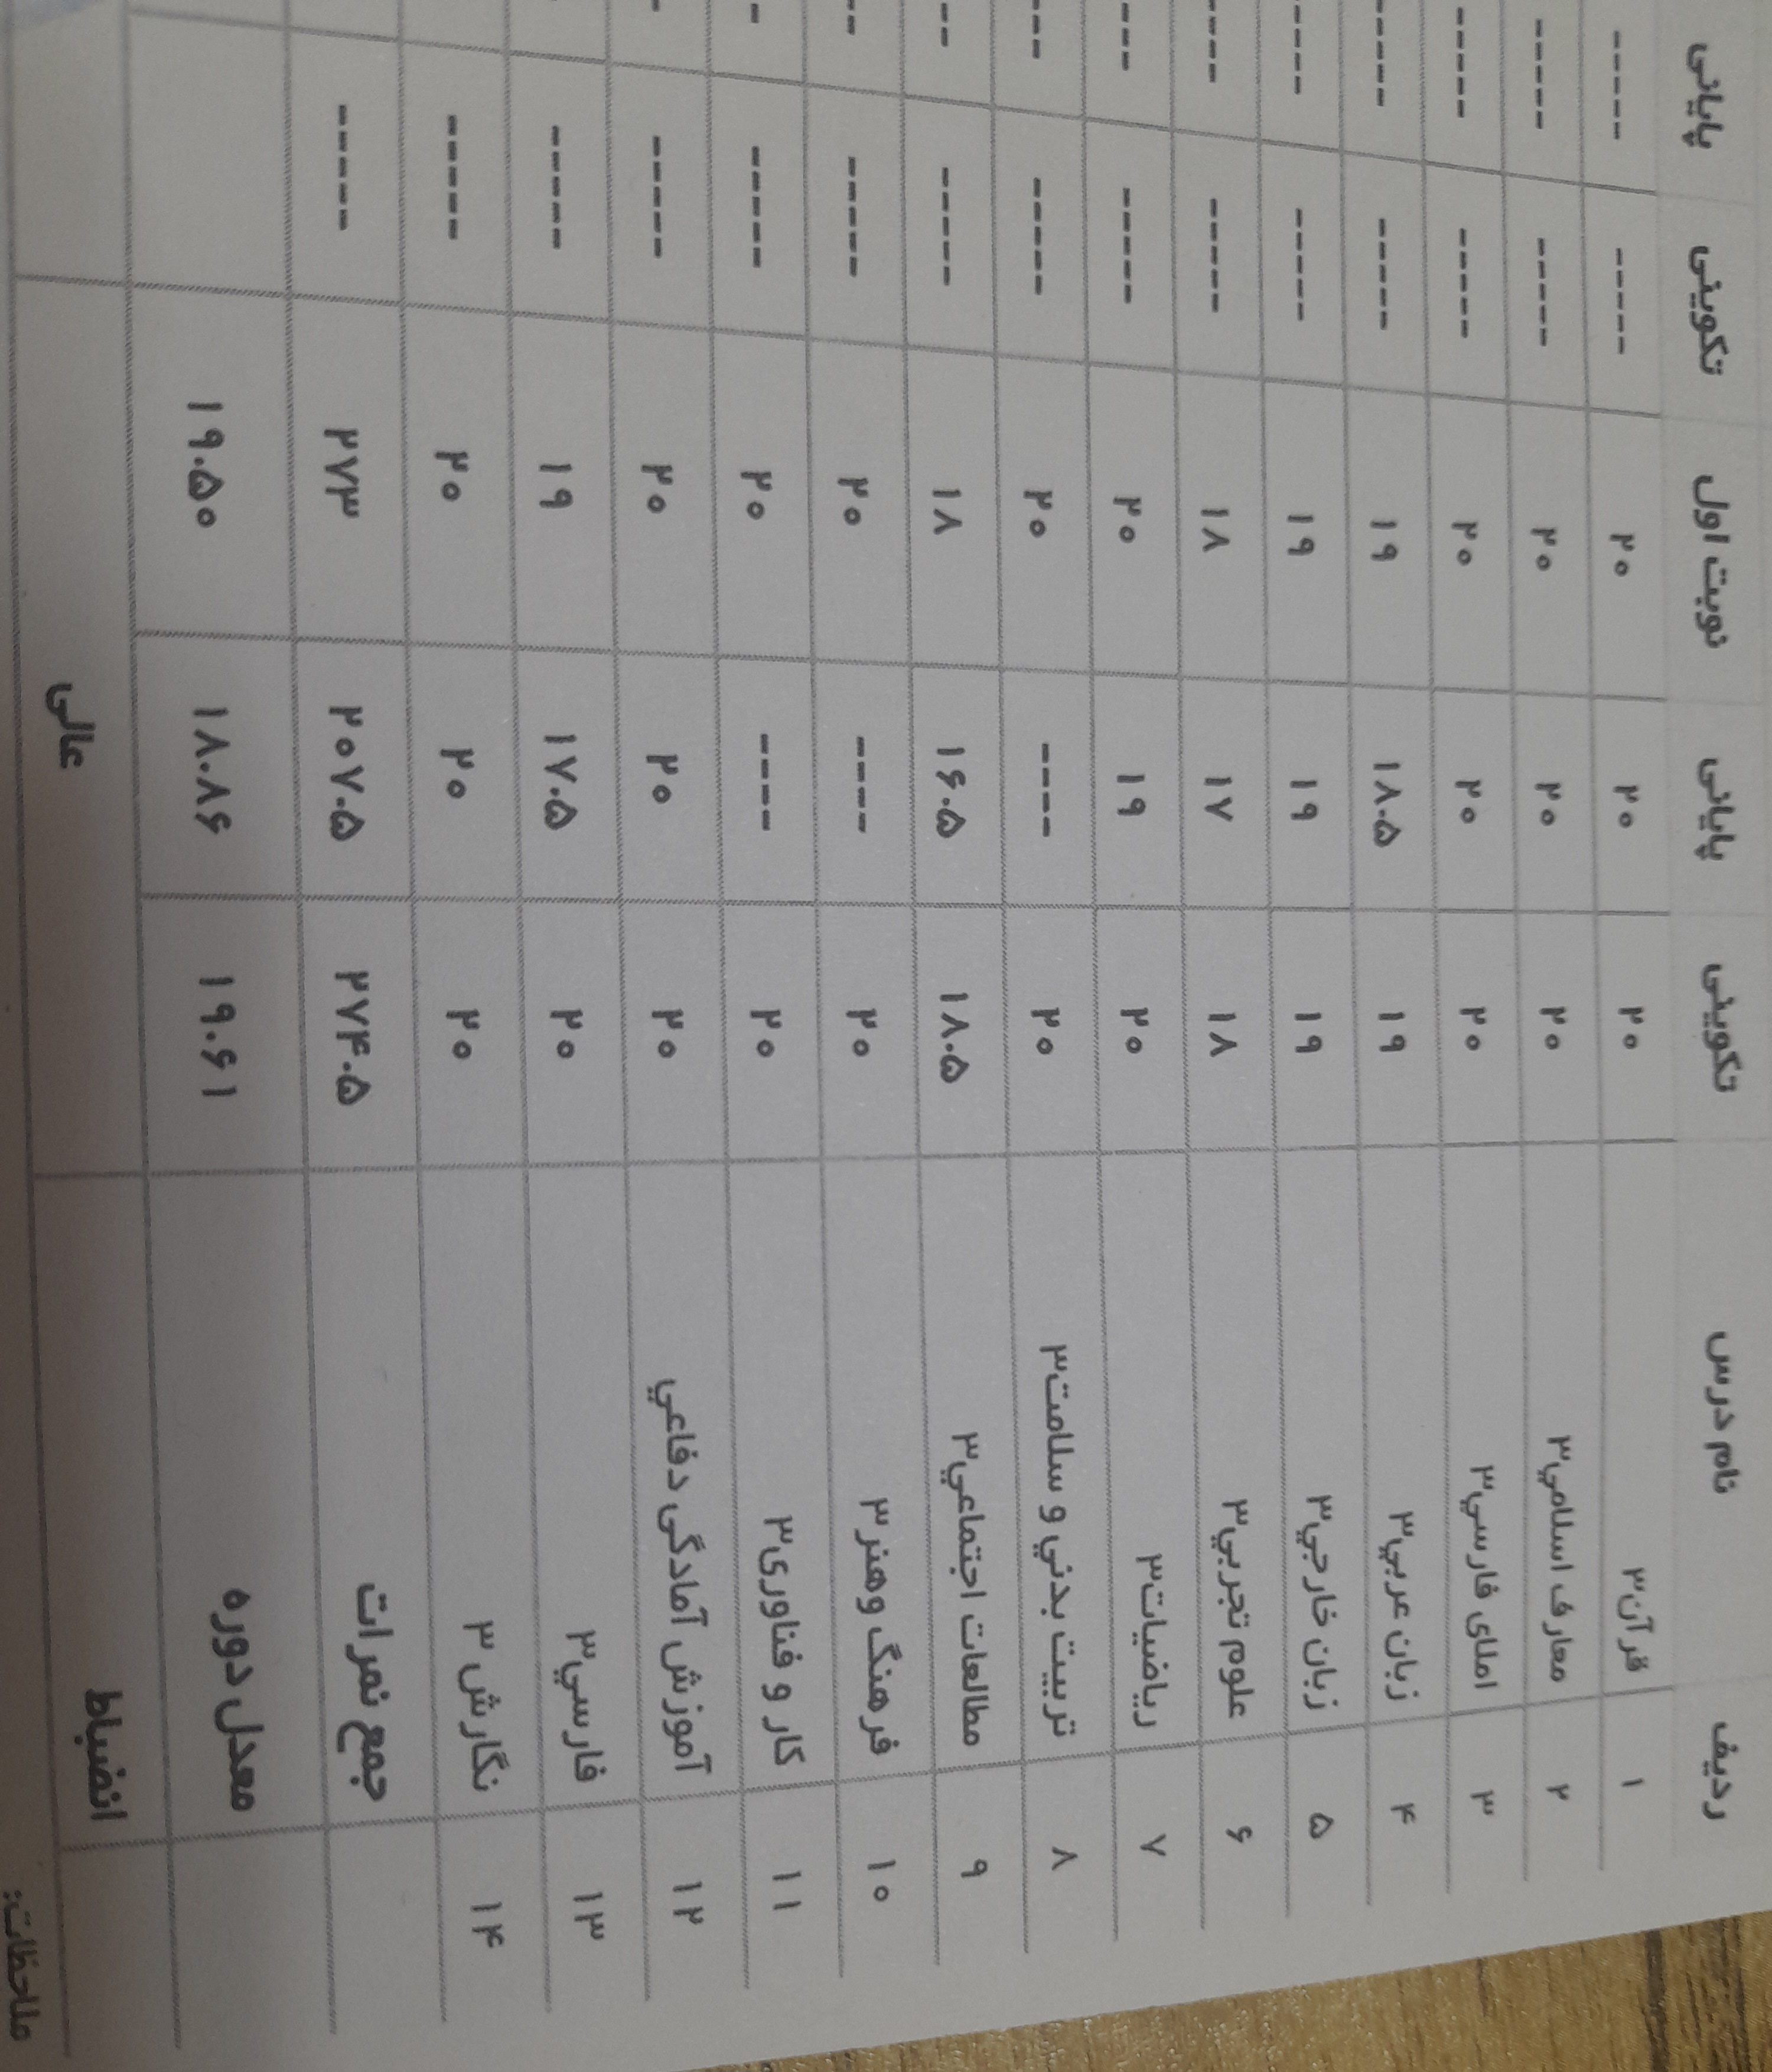 ردیف نام درس تکوینی پایانی نوبت اول تکوینی پایانی
۱ قرآن۳ ۲۰ ۲۰ ۲۰ ----- -----
۲ معارف اسلامي۳ ۲۰ ۲۰ ۲۰ ----- -----
۳ املای فارسي۳ ۲۰ ۲۰ ۲۰ ----- -----
۴ زبان عربي۳ ۱۹ ۱۷.۵ ۱۹ ----- -----
۵ زبان خارجي۳ ۱۹ ۱۹ ۱۹ ----- ----
۶ علوم تجربي۳ ۱۸ ۱۸ ۱۸ ----- ----
۷ ریاضیات۳ ۲۰ ۱۹ ۲۰ ----- ---
۸ تربیت بدني و سلامت۳ ۲۰ ---- ۲۰ ----- ---
۹ مطالعات اجتماعي۳ ۱۸.۵ ۱۶.۵ ۱۸ ----- --
۱۰ فرهنگ وهنر۳ ۲۰ ---- ۲۰ ----- --
۱۱ کار و فناوری۳ ۲۰ ---- ۲۰ ----- -
۱۲ آموزش آمادگی دفاعي ۲۰ ۲۰ ۲۰ ----- -
۱۳ فارسي۳ ۲۰ ۱۷.۵ ۱۹ -----
۱۴ نگارش ۳ ۲۰ ۲۰ ۲۰ -----
جمع نمرات ۲۷۴.۵ ۲۰۷.۵ ۲۷۳ -----
معدل دوره ۱۹.۶۱ ۱۸.۸۶ ۱۹.۵۰
انضباط عالی
ملاحظات: